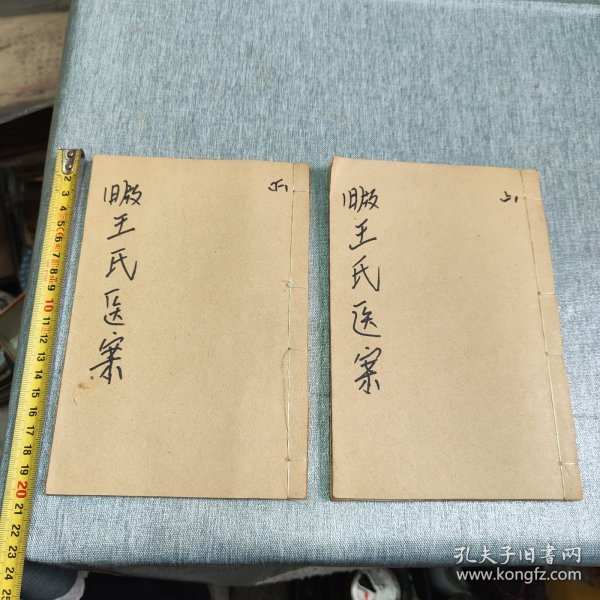 旧版
王氏医案
旧版
王氏医案
上
2
3
4
5
6
7
8
9
10
11
12
13
14
15
16
17
18
19
20
21
22
23
24
25
孔夫子旧书网
www.kongfz.com